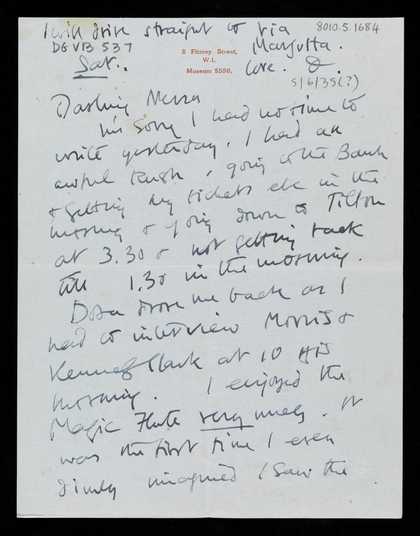 I will drive straight to via
Margutta.
love. D.
8010.5.1684
DGVB 537
5/6/35(?)
8 Fitzroy Street,
W.1.
Museum 5550.
Sat..
Darling Nessa
I'm sorry I had no time to
write yesterday. I had an
awful rush, going to the Bank
& getting my tickets etc in the
morning & going down to Tilton
at 3.30 & not getting back
till 1.30 in the morning.
drove me back as I
had to interview Morris &
Kenneth Clark at 10 this
morning. I enjoyed the
Magic Flute very much. It
was the first time I even
dimly imagined I saw the